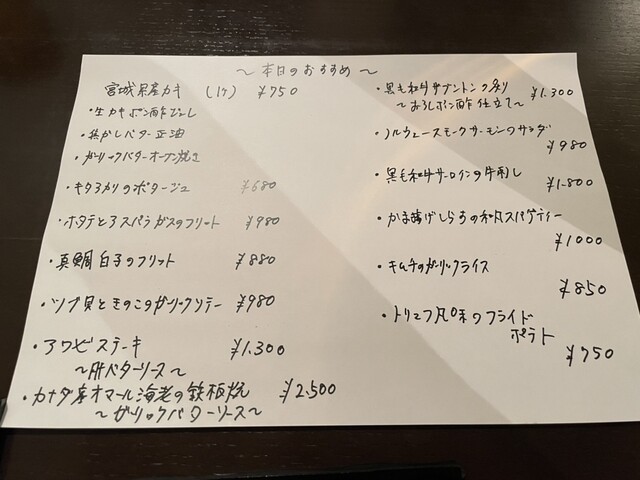 ～本日のおすすめ～
宮城県産カキ (1ケ) ¥750
・生カキポン酢ジュレ
・焦がしバター正油
・ガーリックバターオーブン焼き
・キタアカリのポタージュ ¥680
・ホタテとアスパラガスのフリット ¥980
・真鯛白子のフリット ¥880
・ツブ貝ときのこのガーリックソテー ¥980
・アワビステーキ ¥1.300
～肝バターソース～
・カナダ産オマール海老の鉄板焼 ¥2.500
～ガーリックバターソース～
・黒毛和牛サントンク炙り ¥1.300
～おろしポン酢仕立て～
・ノルウェースモークサーモンのサラダ
¥980
・黒毛和牛サーロインの牛刺し
¥1.800
・かま揚げしらすの和風スパゲティー
¥1000
・キムチのガーリックライス
¥850
・トリュフ風味のフライド
ポテト
¥750